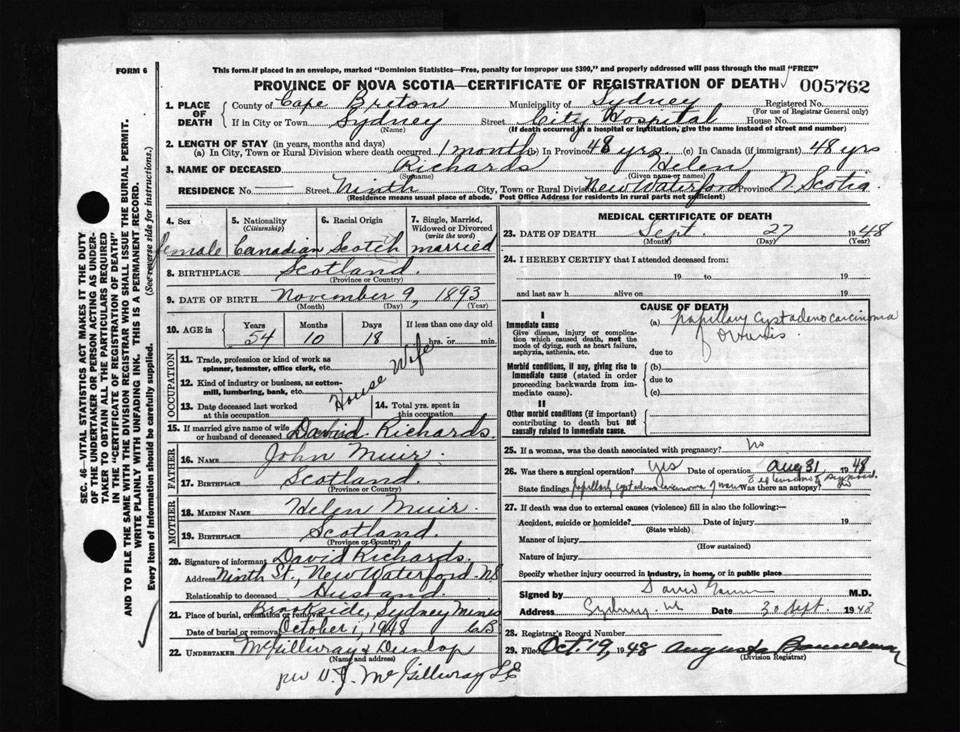 FORM 6
This form if placed in an envelope, marked "Dominion Statistics—Free, penalty for improper use $300," and properly addressed will pass through the mail "FREE"
PROVINCE OF NOVA SCOTIA—CERTIFICATE OF REGISTRATION OF DEATH 005762
1. PLACE OF DEATH
County of Cape Breton Municipality of Sydney Registered No.
(For use of Registrar General only)
If in City or Town Sydney Street City Hospital House No.
(Name) (If death occurred in a hospital or institution, give the name instead of street and number)
2. LENGTH OF STAY (in years, months and days)
(a) In City, Town or Rural Division where death occurred 1 month (b) In Province 48 yrs. (c) In Canada (if immigrant) 48 yrs
3. NAME OF DECEASED Richards Helen
(Surname) (Given name or names)
RESIDENCE No. — Street Ninth City, Town or Rural Division New Waterford Province N. Scotia
(Residence means usual place of abode. Post Office Address for residents in rural parts not sufficient)
4. Sex 5. Nationality (Citizenship) 6. Racial Origin 7. Single, Married, Widowed or Divorced (write the word)
female Canadian Scotch married
8. BIRTHPLACE Scotland.
(Province or Country)
9. DATE OF BIRTH November 9, 1893
(Month) (Day) (Year)
10. AGE in Years Months Days If less than one day old
54 10 18 hrs. or min.
OCCUPATION
11. Trade, profession or kind of work as spinner, teamster, office clerk, etc.
12. Kind of industry or business, as cotton-mill, lumbering, bank, etc.
House Wife
13. Date deceased last worked at this occupation
14. Total yrs. spent in this occupation
15. If married give name of wife or husband of deceased David Richards.
FATHER
16. NAME John Muir.
17. BIRTHPLACE Scotland.
(Province or Country)
MOTHER
18. MAIDEN NAME Helen Muir.
19. BIRTHPLACE Scotland.
(Province or Country)
20. Signature of informant David Richards.
Address Ninth St., New Waterford. NS
Relationship to deceased Husband
21. Place of burial, cremation or removal Brookside, Sydney Mines
Date of burial or removal October 1, 1948 CB
22. UNDERTAKER McGillivray & Dunlop
(Name and address)
per McGillivray
MEDICAL CERTIFICATE OF DEATH
23. DATE OF DEATH Sept. 27 1948
(Month) (Day) (Year)
24. I HEREBY CERTIFY that I attended deceased from:
19 to 19
and last saw h alive on 19
CAUSE OF DEATH
I
Immediate cause (a) papillary cystadeno carcinoma
Give disease, injury or complication which caused death, not the mode of dying, such as heart failure, asphyxia, asthenia, etc.
of ovaries
due to
Morbid conditions, if any, giving rise to immediate cause (stated in order proceeding backwards from immediate cause).
(b)
due to
(c)
II
Other morbid conditions (if important) contributing to death but not causally related to immediate cause.
25. If a woman, was the death associated with pregnancy? No
26. Was there a surgical operation? Yes Date of operation Aug 31 1948
State findings papillary cystadeno carcinoma of Was there an autopsy? yes
27. If death was due to external causes (violence) fill in also the following:—
Accident, suicide or homicide? Date of injury 19
(State which)
Manner of injury
(How sustained)
Nature of injury
Specify whether injury occurred in industry, in home, or in public place
Signed by David M.D.
Address Sydney, Date 30 Sept. 1948
28. Registrar's Record Number
29. Filed Oct. 19, 1948 Augusta Bannerman
(Division Registrar)
SEC. 46—VITAL STATISTICS ACT MAKES IT THE DUTY
OF THE UNDERTAKER OR PERSON ACTING AS UNDERTAKER TO OBTAIN ALL THE PARTICULARS REQUIRED
IN THE "CERTIFICATE OF REGISTRATION OF DEATH"
AND TO FILE THE SAME WITH THE DIVISION REGISTRAR WHO SHALL ISSUE THE BURIAL PERMIT.
WRITE PLAINLY WITH UNFADING INK. THIS IS A PERMANENT RECORD.
Every item of information should be carefully supplied. (See reverse side for instructions.)